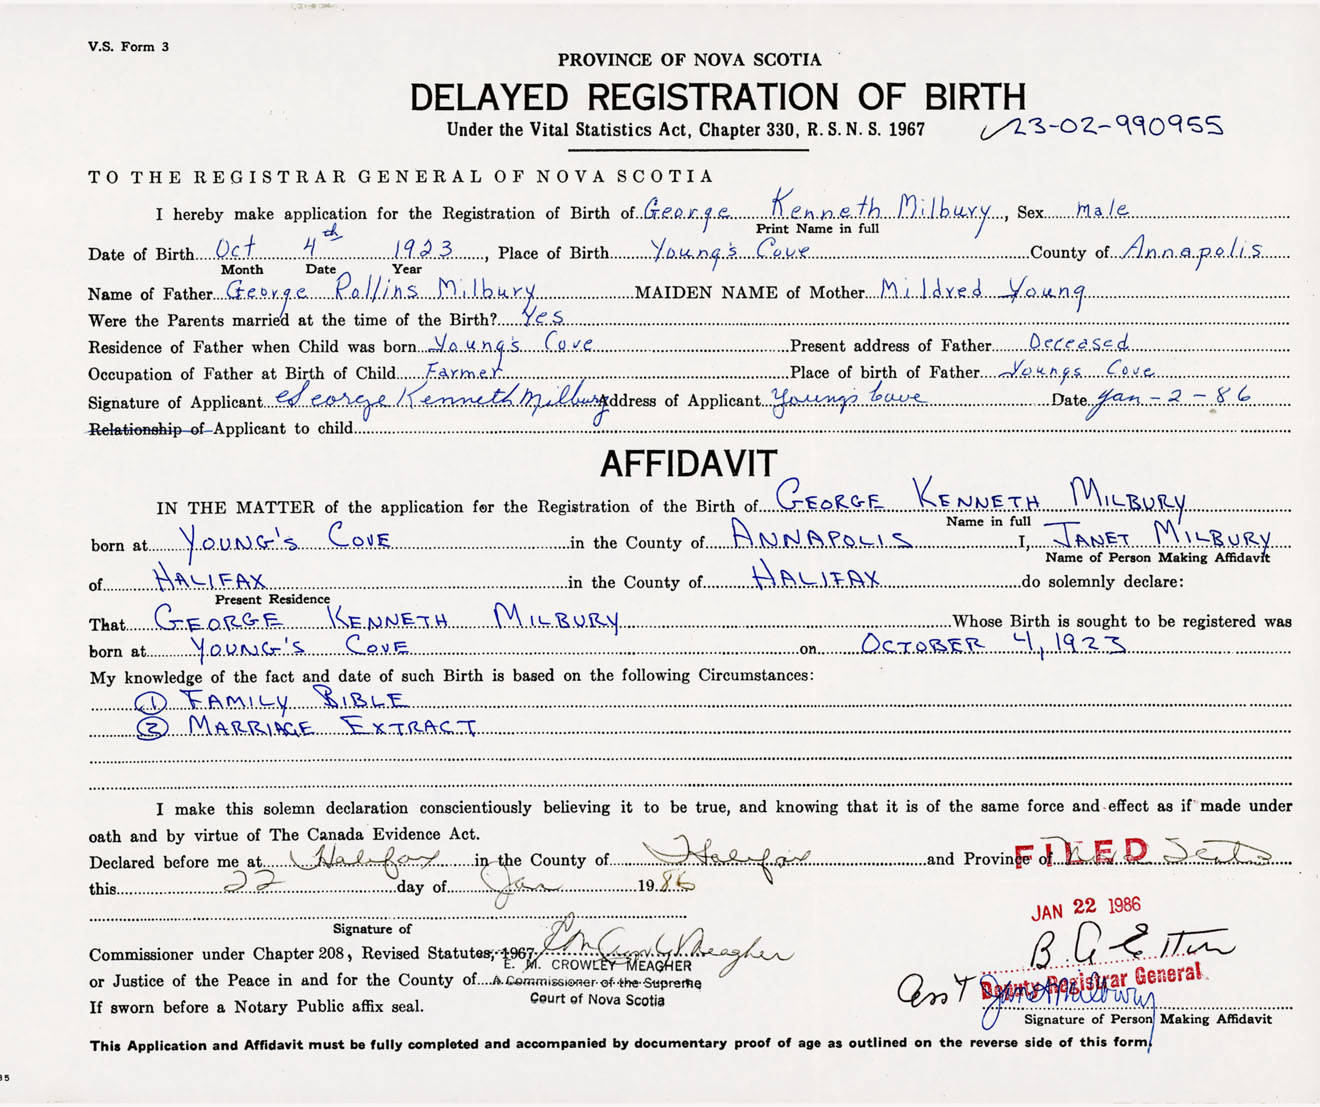 V.S. Form 3
PROVINCE OF NOVA SCOTIA
DELAYED REGISTRATION OF BIRTH
Under the Vital Statistics Act, Chapter 330, R. S. N. S. 1967 23-02-990955
TO THE REGISTRAR GENERAL OF NOVA SCOTIA
I hereby make application for the Registration of Birth of George Kenneth Milbury, Sex male
Print Name in full
Date of Birth Oct 4th 1923, Place of Birth Young's Cove County of Annapolis
Month Date Year
Name of Father George Rollins Milbury MAIDEN NAME of Mother Mildred Young
Were the Parents married at the time of the Birth? Yes
Residence of Father when Child was born Young's Cove Present address of Father Deceased
Occupation of Father at Birth of Child Farmer Place of birth of Father Youngs Cove
Signature of Applicant George Kenneth Milbury Address of Applicant Young's Cove Date Jan - 2 - 86
Relationship of Applicant to child
AFFIDAVIT
IN THE MATTER of the application for the Registration of the Birth of GEORGE KENNETH MILBURY
Name in full
born at YOUNG'S COVE in the County of ANNAPOLIS I, JANET MILBURY
Name of Person Making Affidavit
of HALIFAX in the County of HALIFAX do solemnly declare:
Present Residence
That GEORGE KENNETH MILBURY Whose Birth is sought to be registered was
born at YOUNG'S COVE on OCTOBER 4, 1923
My knowledge of the fact and date of such Birth is based on the following Circumstances:
1 FAMILY BIBLE
2 MARRIAGE EXTRACT
I make this solemn declaration conscientiously believing it to be true, and knowing that it is of the same force and effect as if made under
oath and by virtue of The Canada Evidence Act.
Declared before me at Halifax in the County of Halifax and Province of Nova Scotia
FILED
this 22 day of Jan 1986
JAN 22 1986
Signature of
Commissioner under Chapter 208, Revised Statutes, 1967
E. M. CROWLEY MEAGHER
or Justice of the Peace in and for the County of A Commissioner of the Supreme
Deputy Registrar General
Court of Nova Scotia
If sworn before a Notary Public affix seal.
Asst Janet Milbury
Signature of Person Making Affidavit
This Application and Affidavit must be fully completed and accompanied by documentary proof of age as outlined on the reverse side of this form.